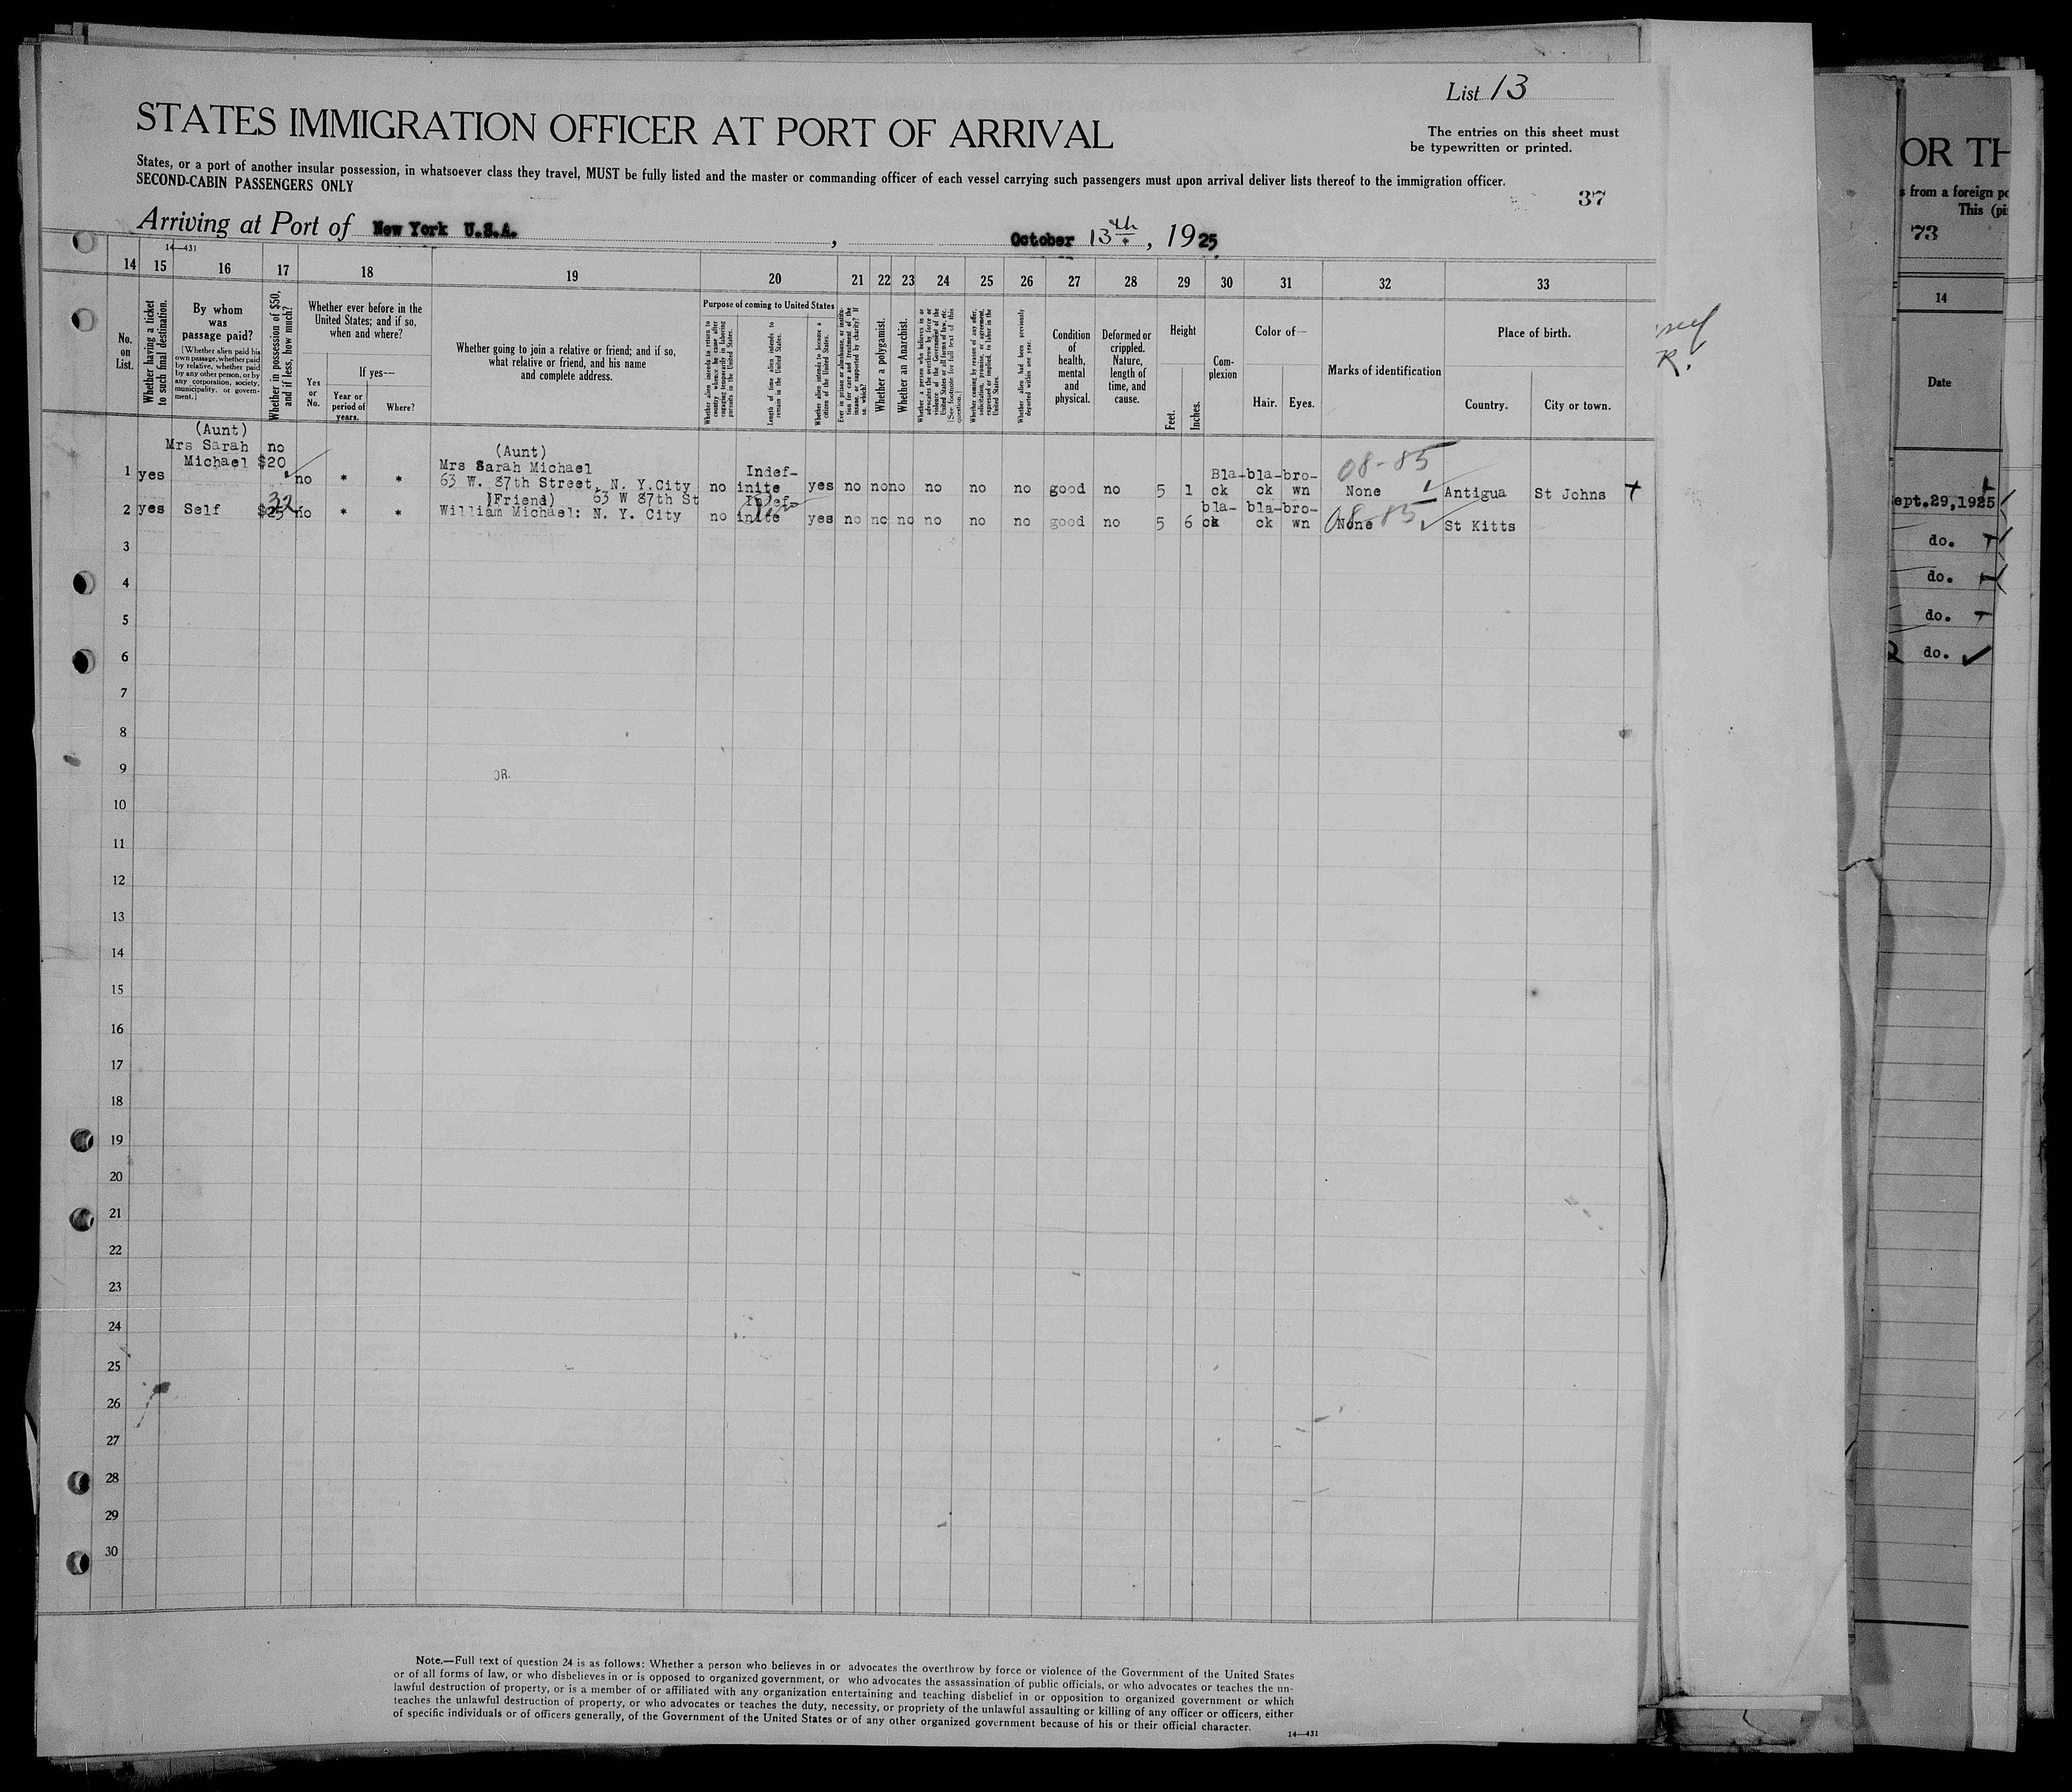 List 13
STATES IMMIGRATION OFFICER AT PORT OF ARRIVAL
The entries on this sheet must
be typewritten or printed.
States, or a port of another insular possession, in whatsoever class they travel, MUST be fully listed and the master or commanding officer of each vessel carrying such passengers must upon arrival deliver lists thereof to the immigration officer.
SECOND-CABIN PASSENGERS ONLY
37
Arriving at Port of New York U.S.A., October 13th, 1925
14—431
14 15 16 17 18 19 20 21 22 23 24 25 26 27 28 29 30 31 32 33
No. on List.
Whether having a ticket to such final destination.
By whom was passage paid?
[Whether alien paid his own passage, whether paid by relative, whether paid by any other person, or by any corporation, society, municipality, or government.]
Whether in possession of $50, and if less, how much?
Whether ever before in the United States; and if so, when and where?
Yes or No.
If yes—
Year or period of years.
Where?
Whether going to join a relative or friend; and if so, what relative or friend, and his name and complete address.
Purpose of coming to United States
Whether alien intends to return to country whence he came after engaging temporarily in laboring pursuits in the United States.
Length of time alien intends to remain in the United States.
Whether alien intends to become a citizen of the United States.
Ever in prison or almshouse, or institution for care and treatment of the insane, or supported by charity? If so, which?
Whether a polygamist.
Whether an Anarchist.
Whether a person who believes in or advocates the overthrow by force or violence of the Government of the United States or all forms of law, etc. [See footnote for full text of this question.]
Whether coming by reason of any offer, solicitation, promise, or agreement, expressed or implied, to labor in the United States.
Whether alien had been previously deported within one year.
Condition of health, mental and physical.
Deformed or crippled. Nature, length of time, and cause.
Height
Feet.
Inches.
Complexion
Color of—
Hair.
Eyes.
Marks of identification
Place of birth.
Country.
City or town.
(Aunt)
Mrs Sarah no
Michael $20
1 yes no * *
(Aunt)
Mrs Sarah Michael
63 W. 37th Street, N. Y.City no Indef-inite yes no no no no no no good no 5 1 Bla-ck bla-ck bro-wn 08-85 None Antigua St Johns
2 yes Self $25 32 no * *
(Friend) 63 W 37th St
William Michael: N. Y. City no Indef-inite yes no no no no no no good no 5 6 bla-ck bla-ck bro-wn 08-85 None St Kitts
3
4
5
6
7
8
9
OR.
10
11
12
13
14
15
16
17
18
19
20
21
22
23
24
25
26
27
28
29
30
Note.—Full text of question 24 is as follows: Whether a person who believes in or advocates the overthrow by force or violence of the Government of the United States
or of all forms of law, or who disbelieves in or is opposed to organized government, or who advocates the assassination of public officials, or who advocates or teaches the un-
lawful destruction of property, or is a member of or affiliated with any organization entertaining and teaching disbelief in or opposition to organized government or which
teaches the unlawful destruction of property, or who advocates or teaches the duty, necessity, or propriety of the unlawful assaulting or killing of any officer or officers, either
of specific individuals or of officers generally, of the Government of the United States or of any other organized government because of his or their official character.
14—431
R.
OR TH
s from a foreign po
This (pi
73
14
Date
ept.29,1925
do.
do.
do.
do.